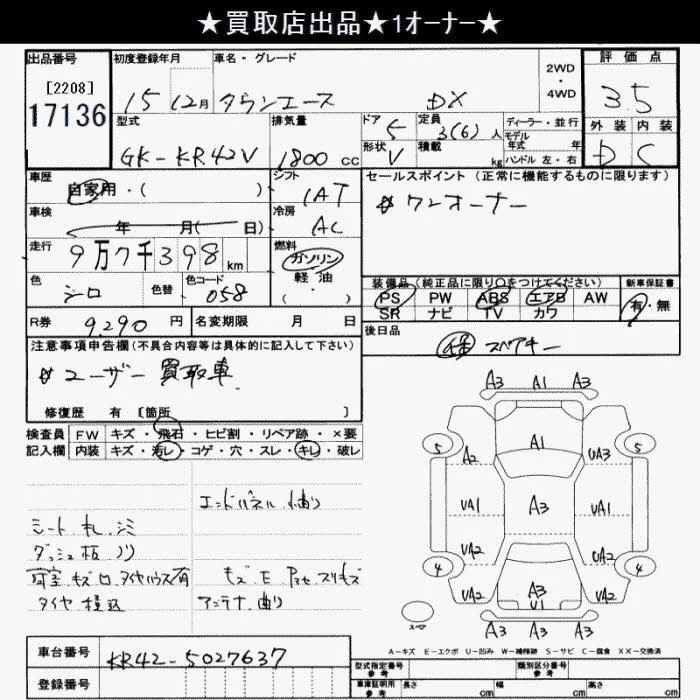 ★買取店出品★1オーナー★
出品番号 初度登録年月 車名・グレード 2WD・4WD 評価点
[2208] 17136 15 12月 タウンエース DX 3.5
型式 排気量 ドア 5 定員 3(6)人 ディーラー・並行 外装 内装
GK-KR42V 1800cc 形状 V 積載 kg モデル年式 年 ハンドル 左・右 D C
車歴 自家用・( ) シフト IAT セールスポイント(正常に機能するものに限ります)
車検 年 月( 日) 冷房 AC ワンオーナー
走行 9万7千398km 燃料 ガソリン・軽油・( )
色 シロ 色替 色コード 058 装備品(純正品に限り○をつけてください) 新車保証書
PS PW ABS エアB AW 有・無
SR ナビ TV カワ
R券 9,290円 名変期限 月 日 後日品
注意事項申告欄(不具合内容等は具体的に記入して下さい) 保 スペアキー
ユーザー買取車
修復歴 有 [箇所 ]
検査員 FW キズ・飛石・ヒビ割・リペア跡・×要
記入欄 内装 キズ・汚レ・コゲ・穴・スレ・キレ・破レ
エンドパネル曲り
シート.札.シミ
ダッシュ板ノリ
タイヤ積込
アンテナ.曲り
A3 A1 A3
5 A2 A1 UA3 5
UA1 A3 UA1
UA2 UA2
4 UA2 A3 U1 UA2 4
A3 A3 A3
スペア
A-キズ E-エクボ U-凹み W-補修跡 S-サビ C-腐食 XX-交換済
車台番号 KR42-5027637 型式指定番号 参考 類別区分番号 参考
登録番号 車庫証明用 参考 長さ cm 幅 cm 高さ cm